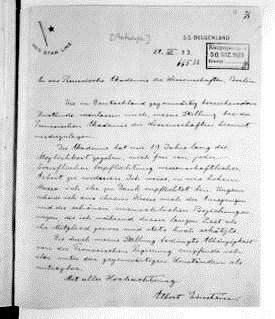 [Antwerpen]
S.S. BELGENLAND
RED STAR LINE
28. III 33.
An die Preussische Akademie der Wissenschaften, Berlin
Die in Deutschland gegenwärtig herrschenden
Zustände veranlassen mich, meine Stellung bei der
Preussischen Akademie der Wissenschaften hiermit
niederzulegen.
Die Akademie hat mir 19 Jahre lang die
Möglichkeit gegeben, mich frei von jeder
beruflichen Verpflichtung wissenschaftlicher
Arbeit zu widmen. Ich weiss, in wie hohem
Masse ich ihr zu Dank verpflichtet bin. Ungern
scheide ich aus ihrem Kreise auch der Anregungen
und der schönen menschlichen Beziehungen
wegen, die ich während dieser langen Zeit als
ihr Mitglied genoss und stets hoch schätzte.
Die durch meine Stellung bedingte Abhängigkeit
von der Preussischen Regierung empfinde ich
aber unter den gegenwärtigen Umständen als
untragbar.
Mit aller Hochachtung
Albert Einstein.